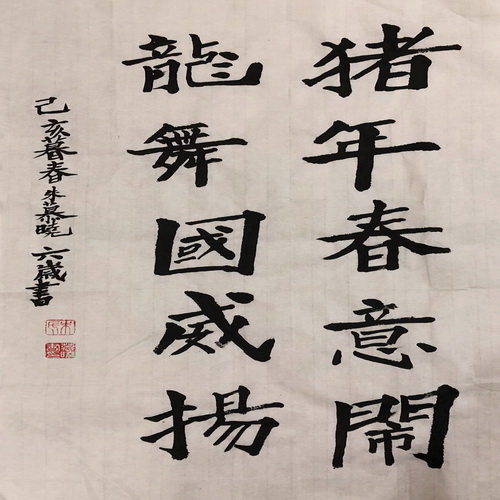 猪年春意鬧
龍舞國威揚
己亥暮春朱慕曉六歲書